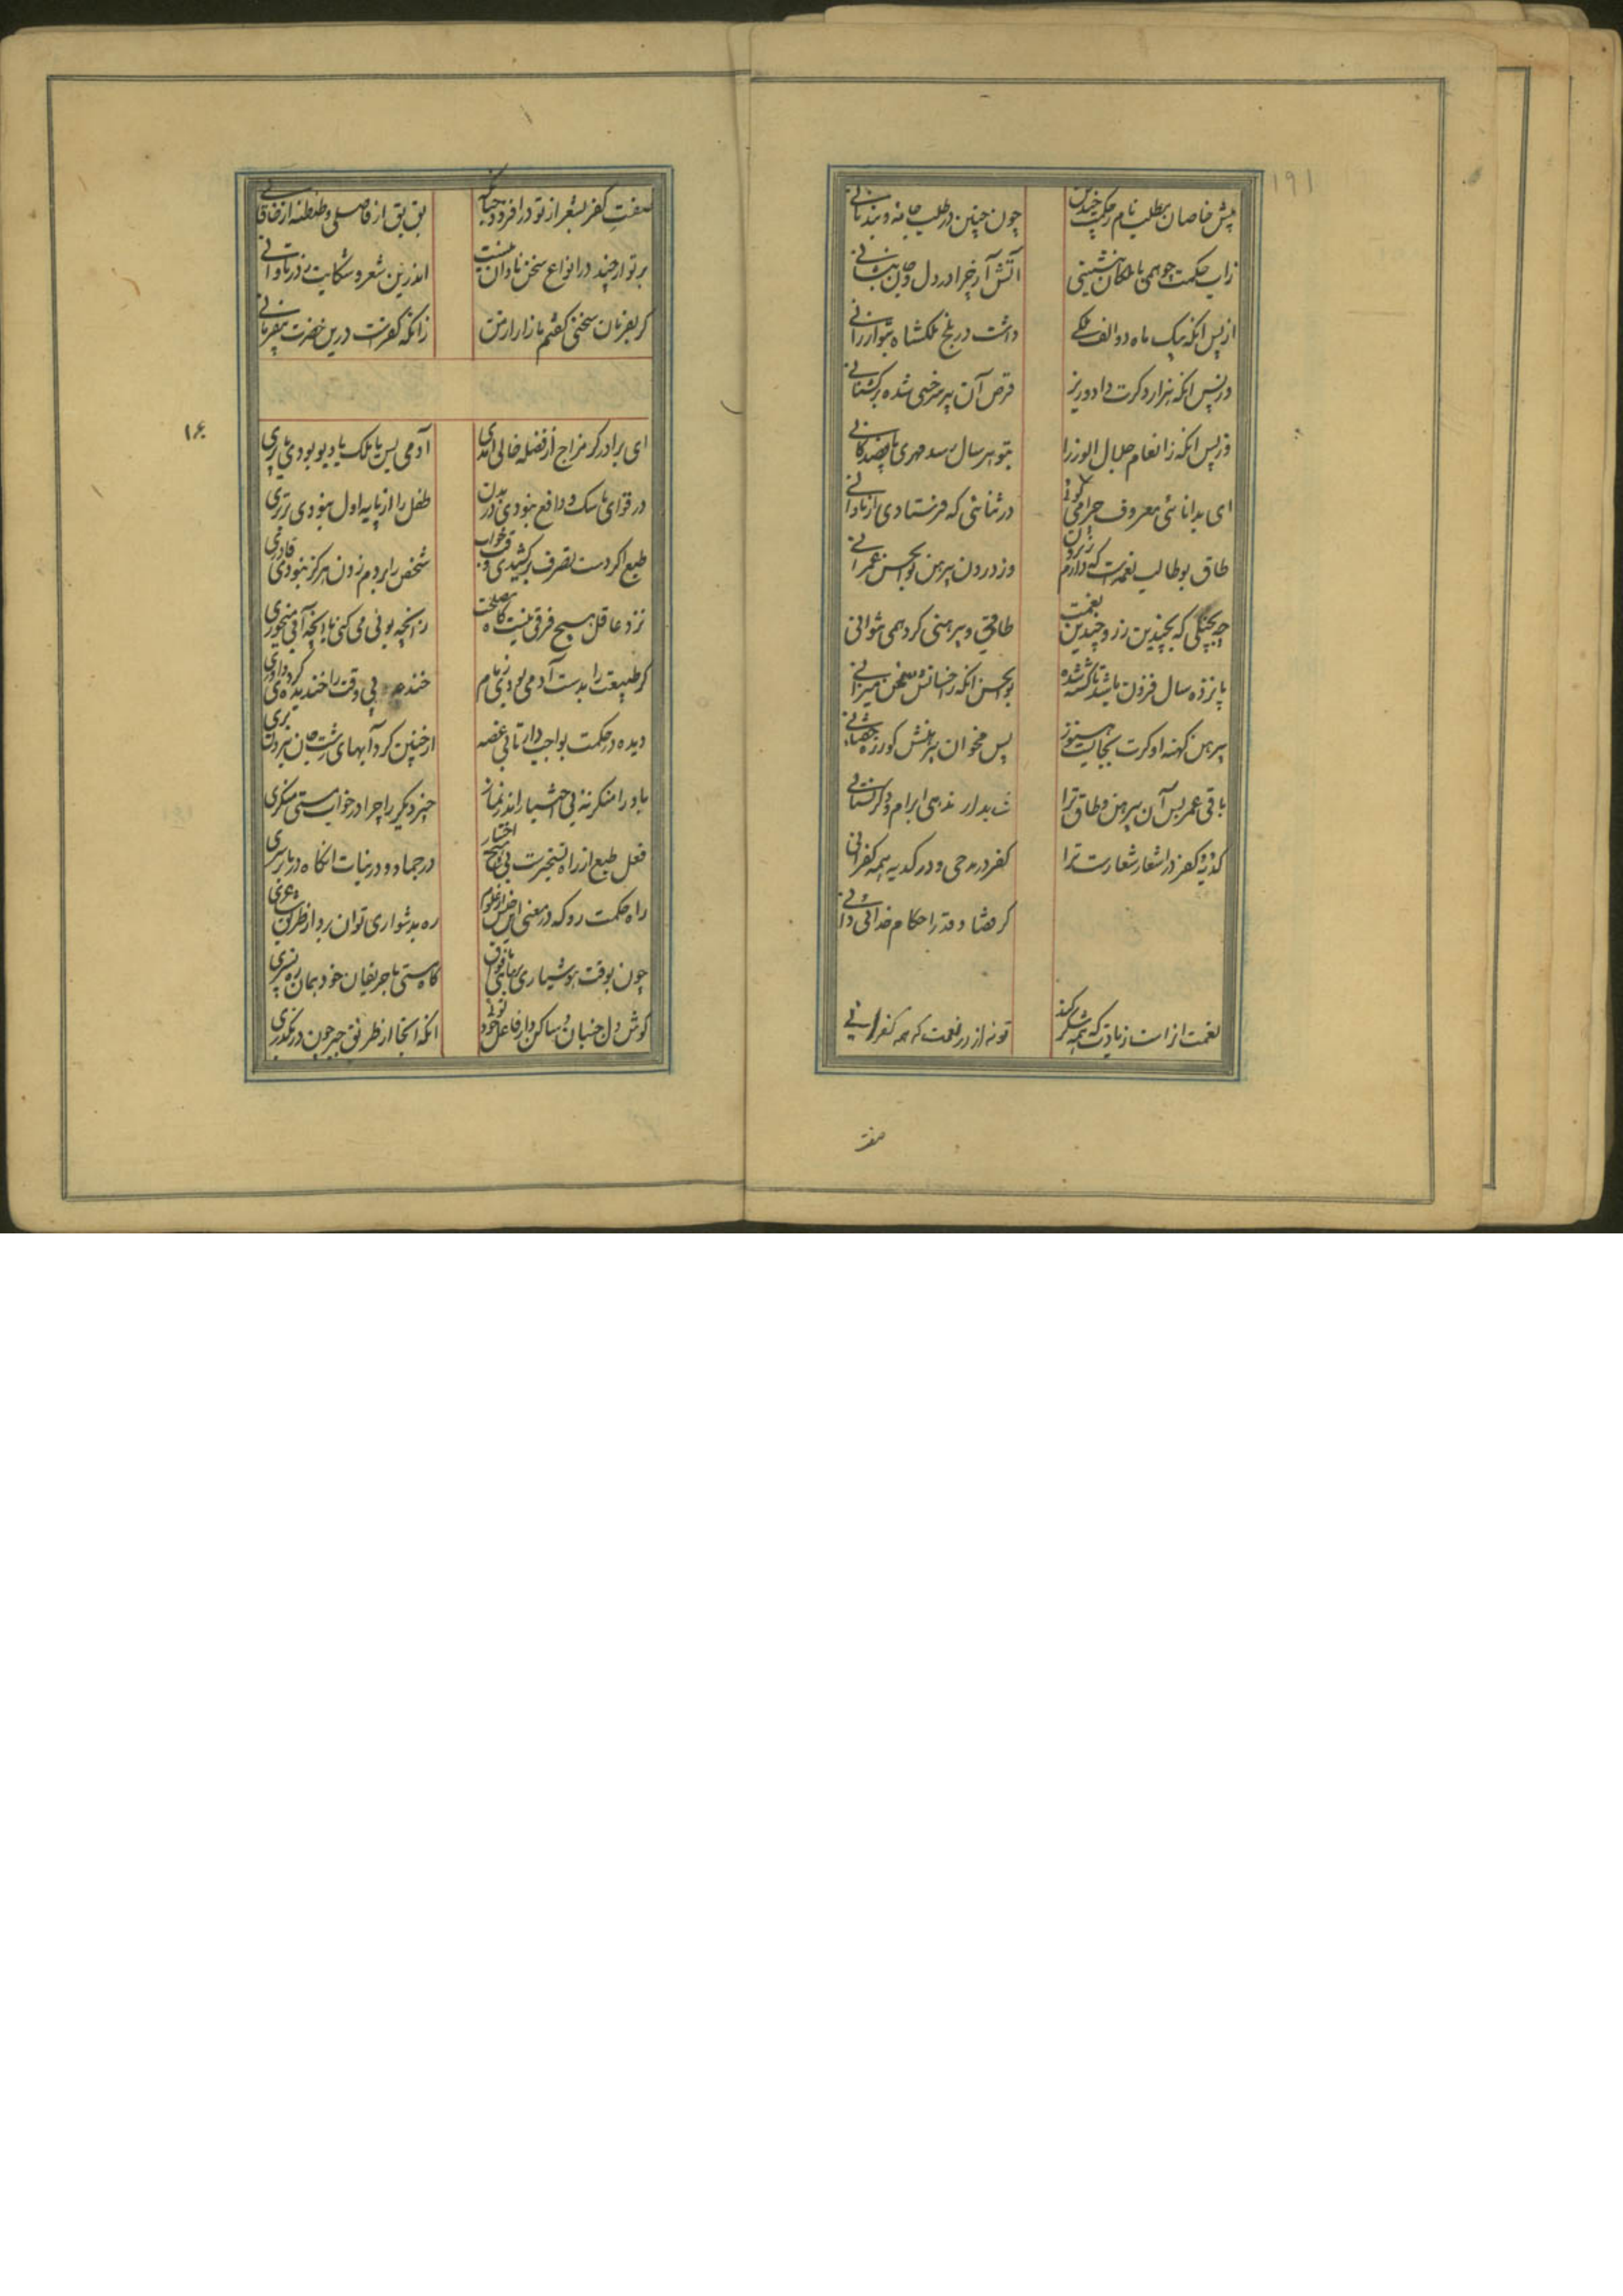 ۱۹۱
پیش خاصان مطلب نام ز حکمت چندین
چون چنین در طلب جامه و بند نانی
زاب حکمت چو همی با ملکان بنشینی
آتش آز چرا در دل و جان بنشانی
از پس آنکه بیک ماه دو الف ملکی
داشت در بلخ ملکشاه بتو ارزانی
وز پس آنکه هزار دکرت داد وزیر
قرض آن پیر سرخسی شده ترکستانی
وز پس آنکه ز انعام جلال الوزرا
بتو هر سال رسد مهری پانصدکانی
ای بدانائی معروف چرا می کوئی
در ثنائی که فرستادی از نادانی
طاق بوطالب نعمه است که دارم ز برون
وز درون پیرهن بوالحسن عمرانی
چه بخیلی که بچندین زر و چندین نعمت
طاقی و پیرهنی کرد همی نتوانی
پانزده سال فزون باشد تا کشته شده
بوالحسن آنکه ز احسانش سخن میرانی
پیرهن کهنه او کرت بجایست هنوز
پس مخوان پیرهنش کو زره خفتانی
باقی عمر بس آن پیرهن و طاق ترا
ت بدار ندهی ابرام و دکر نستانی
کدیه و کفر در اشعار شعارست ترا
کفر در مدحی و در کدیه همه کفرانی
کر قضا و قدر احکام خدائی دانی
نعمت از است زیادت که همه شکر کند
تو نه از در نعمت که همه کفرانی
صفت
صفت کفر بشعر از تو در افزود چنانک
بق بق از فاضلی و طنطنه از خاقانی
بر تو ار چند در انواع سخن تاوان نیست
اندرین شعر و شکایت ز در تاوانی
کر بفرمان سخنی کفتم مازار از من
زانکه کفرست درین حضرت بیفرمانی
۱۶
ای برادر کر مزاج از فضله خالی آمدی
آدمی بس یا ملک یا دیو بودی یا پری
در قوای ماسک و دافع نبودی در بدن
طفل را از پایه اول نبودی برتری
طبع اکر دست تصرف برکشیدی وقت خواب
شخص را بر دم زدن هرکز نبودی قادری
نزد عاقل هیچ فرقی نیست کاه مصلحت
زانچه بوئی می کنی تا آنچه آبی میخوری
کر طبیعت را بدست آدمی بودی زمام
خنده بی وقت را خندیده کردی داوری
دیده در حکمت بواجب دار تا بی غصه
از چنین کردآبهای زشت جان بیرون بری
باد را منکر نه بی اختیار اندر نماز
چیز دیکر را چرا در خواب و مستی منکری
فعل طبع از راه تسخیرست بی هیچ اختیار
در جماد و در نبات آنکاه در جانوری
راه حکمت رو که در معنی این جنس از علوم
ره بدشواری توان برد از طریق شاعری
چون بوقت هوشیاری
کاه مستی با حریفان خود بمان ره نسپری
کوش دل جنبان و ساکن دار فاعل خود توئی
آنکه آنجا از طریق جبر چون در نکذری